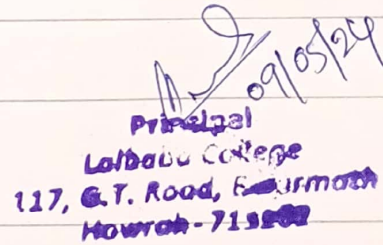 09/05/24
Principal
Lalbaba College
117, G.T. Road,
Howrah-711202